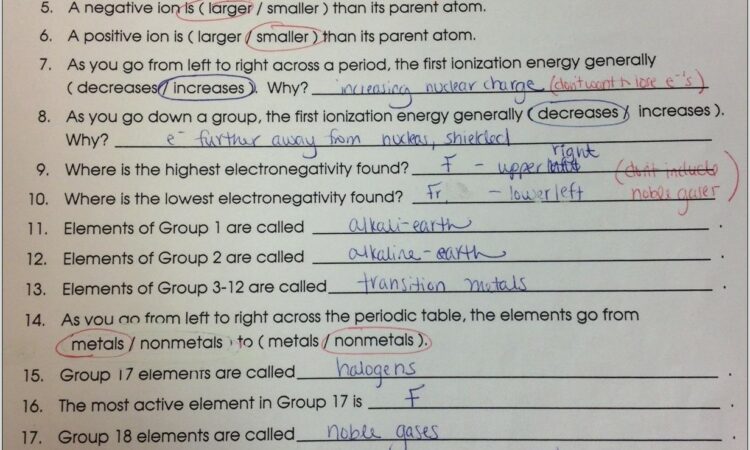 5. A negative ion is ( larger / smaller ) than its parent atom.
6. A positive ion is ( larger / smaller ) than its parent atom.
7. As you go from left to right across a period, the first ionization energy generally
( decreases / increases ). Why? increasing nuclear charge (don't want to lose e⁻'s)
8. As you go down a group, the first ionization energy generally ( decreases / increases ).
Why? e⁻ further away from nucleus, shielded
right
9. Where is the highest electronegativity found? F - upper (don't include
10. Where is the lowest electronegativity found? Fr - lower left noble gases)
11. Elements of Group 1 are called alkali-earth .
12. Elements of Group 2 are called alkaline-earth .
13. Elements of Group 3-12 are called transition metals .
14. As you go from left to right across the periodic table, the elements go from
( metals / nonmetals ) to ( metals / nonmetals ).
15. Group 17 elements are called halogens .
16. The most active element in Group 17 is F .
17. Group 18 elements are called noble gases .